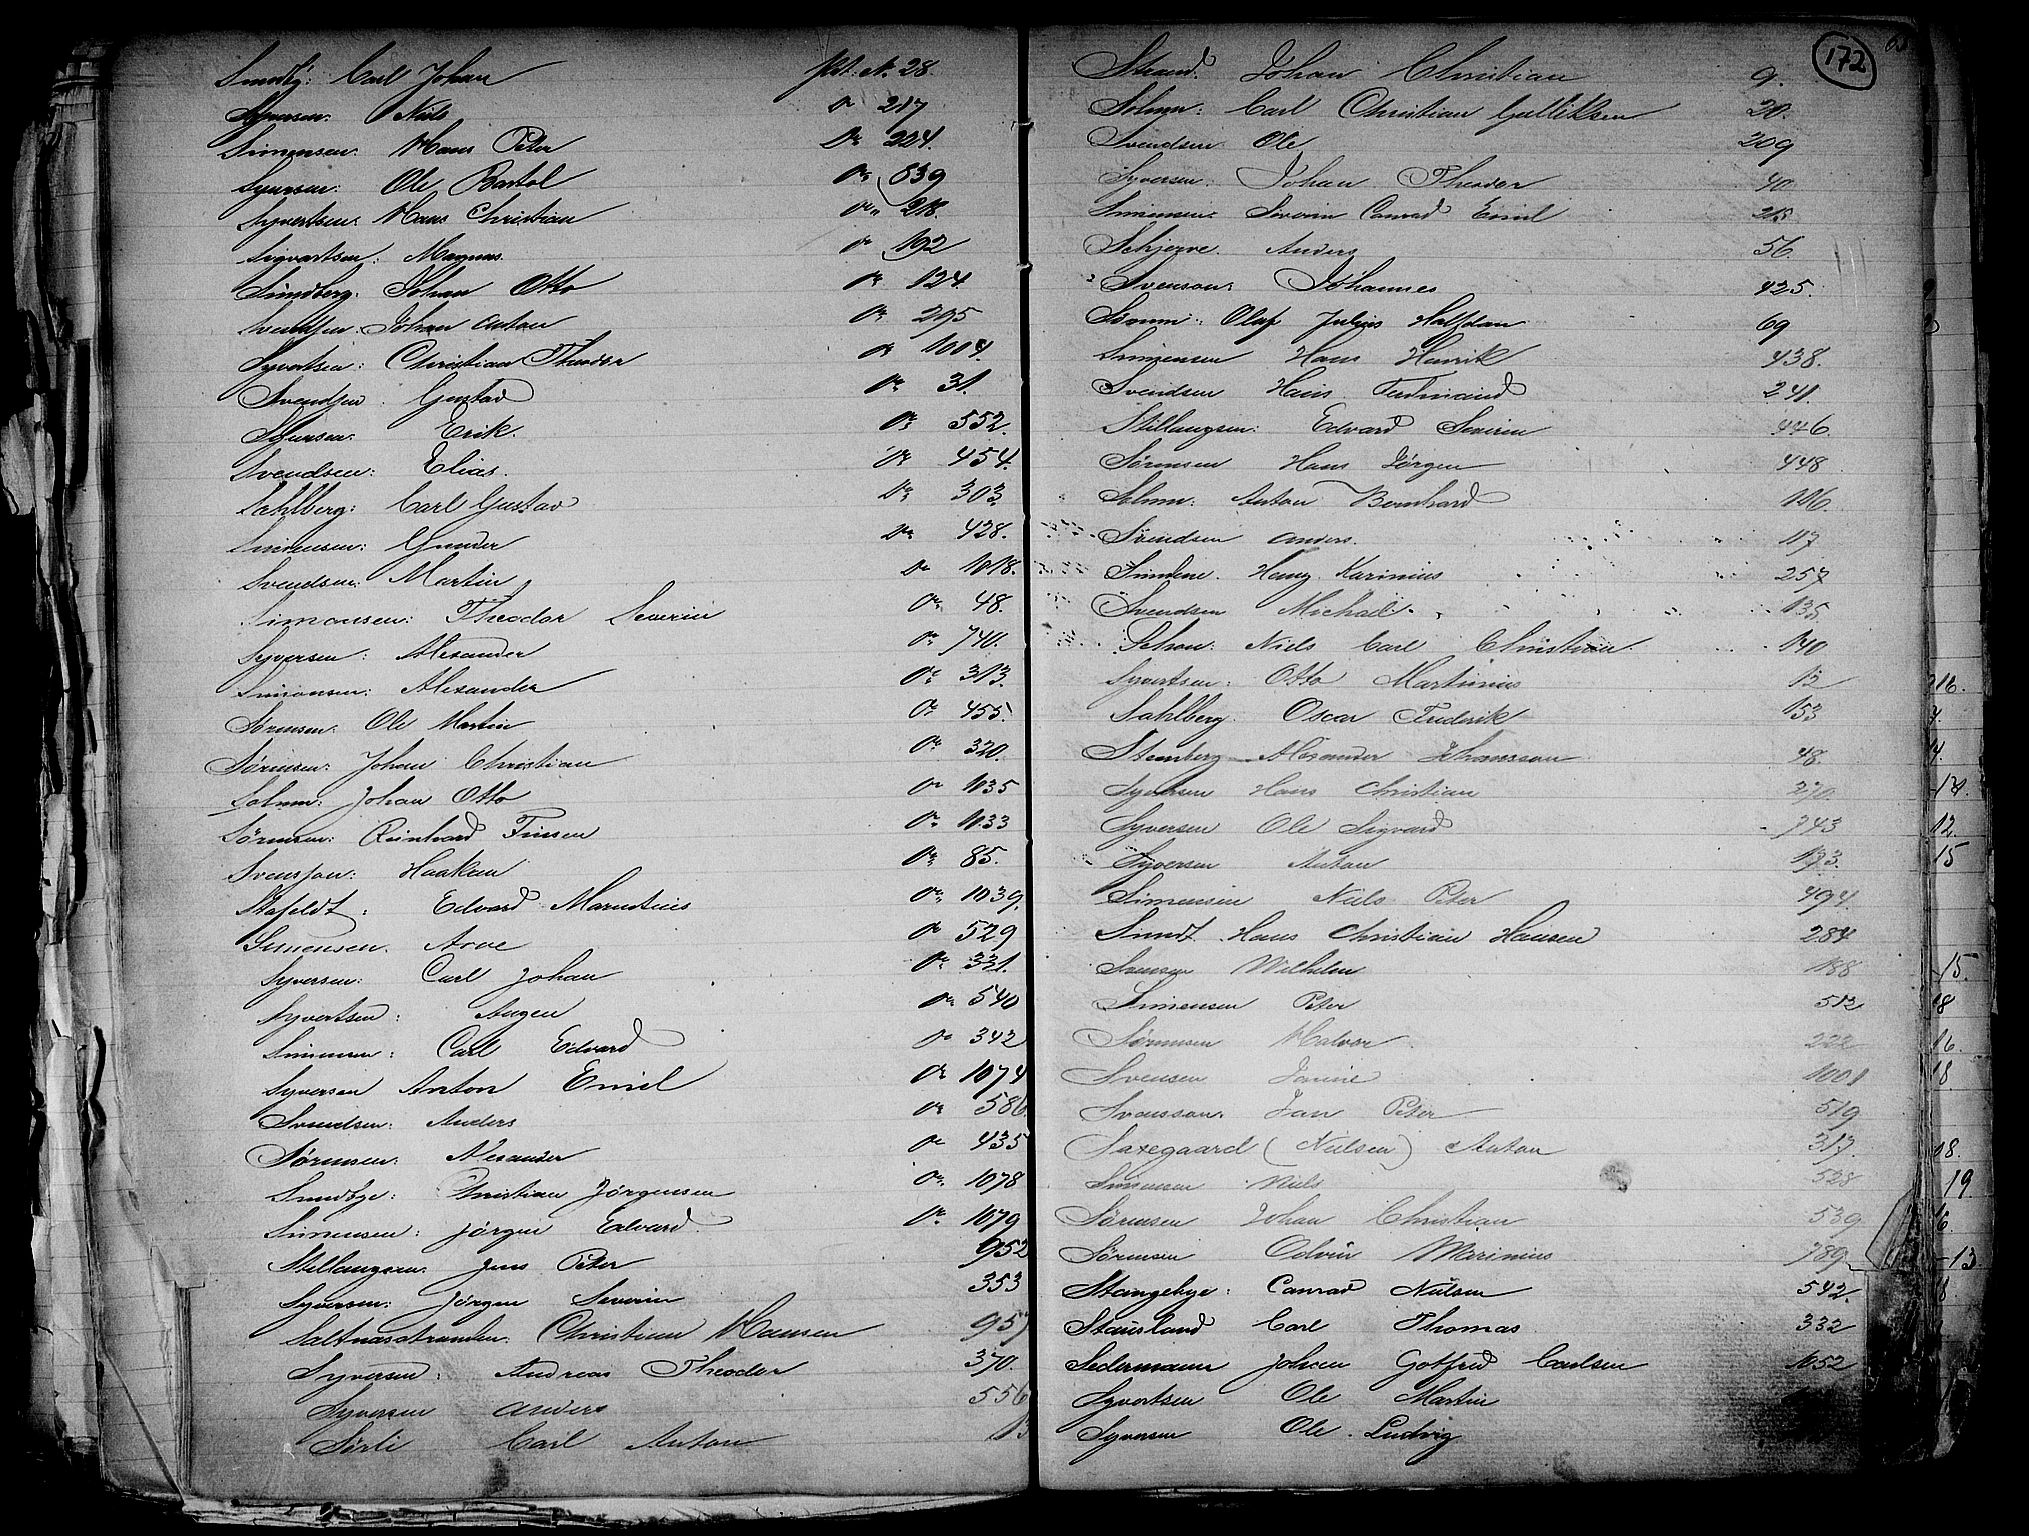 Sundby: Carl Johan Pat. N. 28.
Syversen. Niels do 217
Simensen. Hans Peter Do 204.
Syversen: Ole Bartol Do 839
Syvertsen: Hans Christian do 218.
Sigvartsen: Magnus. do 192
Sundberg: Johan Otto Do 124
Svendsen: Johan Anton Do 295
Syvertsen: Christian Theodor do 1004.
Svendsen. Gustav Do 31.
Syversen. Erik. Do 552.
Svendsen: Elias. do 454.
Sahlberg: Carl Gustav Do 303
Simensen: Gunder Do 428.
Svendsen: Martin do 1018.
Simonsen: Theodor Severin Do 48.
Syversen: Alexander Do 740.
Simonsen: Alexander Do 313.
Sørensen: Ole Martin Do 455.
Sørensen: Johan Christian Do 320.
Solum: Johan Otto Do 1035
Sørensen: Reinhard Finsen Do 1033
Svensson: Haakan Do 85.
Stafeldt: Edvard Marentius Do 1039.
Simensen. Arve do 529
Syversen: Carl Johan Do 331.
Syvertsen: Augen Do 540
Simensen: Carl Edvard Do 342
Syversen Anton Emil Do 1074
Svendsen: Anders do 586
Sørensen: Alexander Do 435
Sundbye: Christian Jørgensen Do 1078
Simensen: Jørgen Edvard Do 1079
Stillaugsen: Jens Peter 952
Syversen: Jørgen Severin 353
Saltnasstranden. Christian Hansen 957
Syversen: Andreas Theodor 370.
Syversen Anders 556
Sørli Carl Anton
172
Strand. Johan Christian 9.
Solum: Carl Christian Gulliksen 20.
Svendsen Ole 209
Syversen: Johan Theodor 40
Simensen: Severin Conrad Emil 215
Schjerve. Anders 56.
Svenson: Johannes 425.
Somm: Olaf Julius Halfdan 69
Simensen Hans Henrik 438.
Svendsen Hans Ferdinand 241.
Stillaugsen: Edvard Severin 446.
Sørensen Hans Jørgen 448
Solum: Anton Bernhard 106.
Svendsen Anders. 117
Sundene. Hans Karinius 257
Svendsen Michael 135
Schou: Niels Carl Christian 140
Syvertsen: Otto Martinius 15
Sahlberg. Oscar Frederik 153
Stenberg Alexander Johansson 48.
Syversen Hans Christian 270.
Syversen Ole Sigvard 743
Syversen Anton 173.
Simensen Niels Peter 494.
Sundt Hans Christian Hansen 284
Svensen Wilhelm 188
Simensen Peter 512
Sørensen Halvor 222
Svensen Janne 1001
Svensson: Jan Peter 519
Saxegaard (Nielsen) Anton 317.
Simensen Niels 528
Sørensen Johan Christian 539
Sørensen Edvin Marinius 789
Stangebye: Conrad Nielsen 542.
Stausland Carl Thomas 332
Sedermann Johan Gotfred Carlsen 1052
Syvertsen Ole Martin
Syversen Ole Ludvig